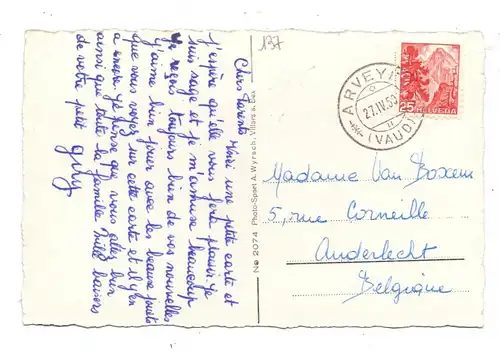 137
Chers Parents Voici une petite carte et
j'espère qu'elle vous fera plaisir. Je
suis sage et je m'amuse beaucoup
Je reçois toujours bien de vos nouvelles
j'aime bien jouer avec les beaux jouets
que vous voyez sur cette carte et il y en
a encore. Je pense que vous allez bien
ainsi que toute la famille Mille baisers
de votre petit Guly
No 2074 Photo-Sport A. Wyrsch, Villars s. Bex
ARVEYES
27.IV.50
(VAUD)
25 HELVETIA
Madame Van Boxem
5, rue Corneille
Anderlecht
Belgique